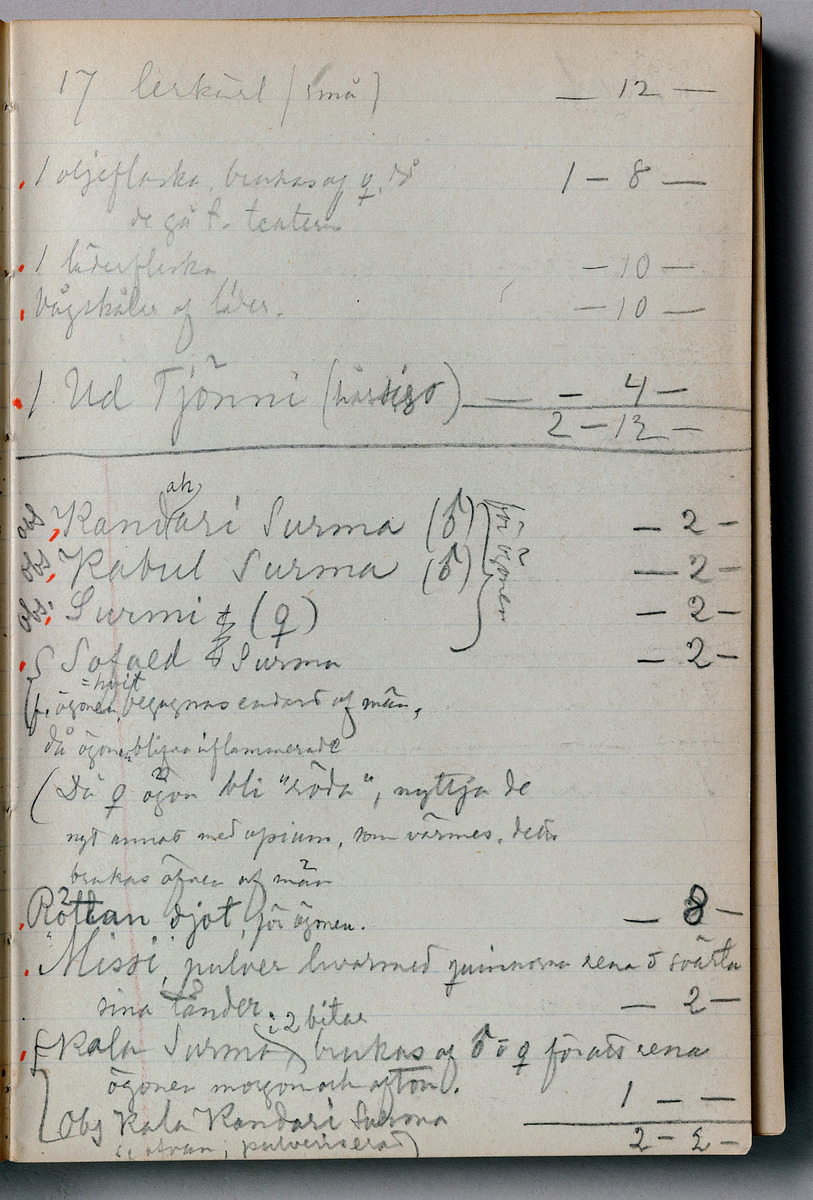 17 lerkärl (små) — 12 —
1 oljeflaska, brukas af ♀, då 1 — 8 —
de gå t. teatern
1 läderflaska — 10 —
Vågskålar af läder. — 10 —
1 Ud Tjönni (hårsigt) — — 4 —
2 — 12 —
ah
obs Kandari Surma (♂) — 2 —
för ögonen
obs Kabul Surma (♂) — 2 —
obs. Surmi (♀) — 2 —
Sofaed Surma — 2 —
= hvit
f. ögonen, begagnas endast af män,
då ögonen blifva inflammerade
(Då ♀ ögon bli "röda", nyttja de
nyt annat med opium, som värmes, detta
brukas äfven af män
Rottan djot, för ögonen. — 8 —
"Missi", pulver hvarmed qvinnorna rena o svärta
sina tänder. — 2 —
i 2 bitar
Kala Surma, brukas af ♂ o ♀ för att rena
ögonen morgon och afton.
1 — —
Obs Kala Kandari Surma
( , pulveriserad)
2 — 2 —